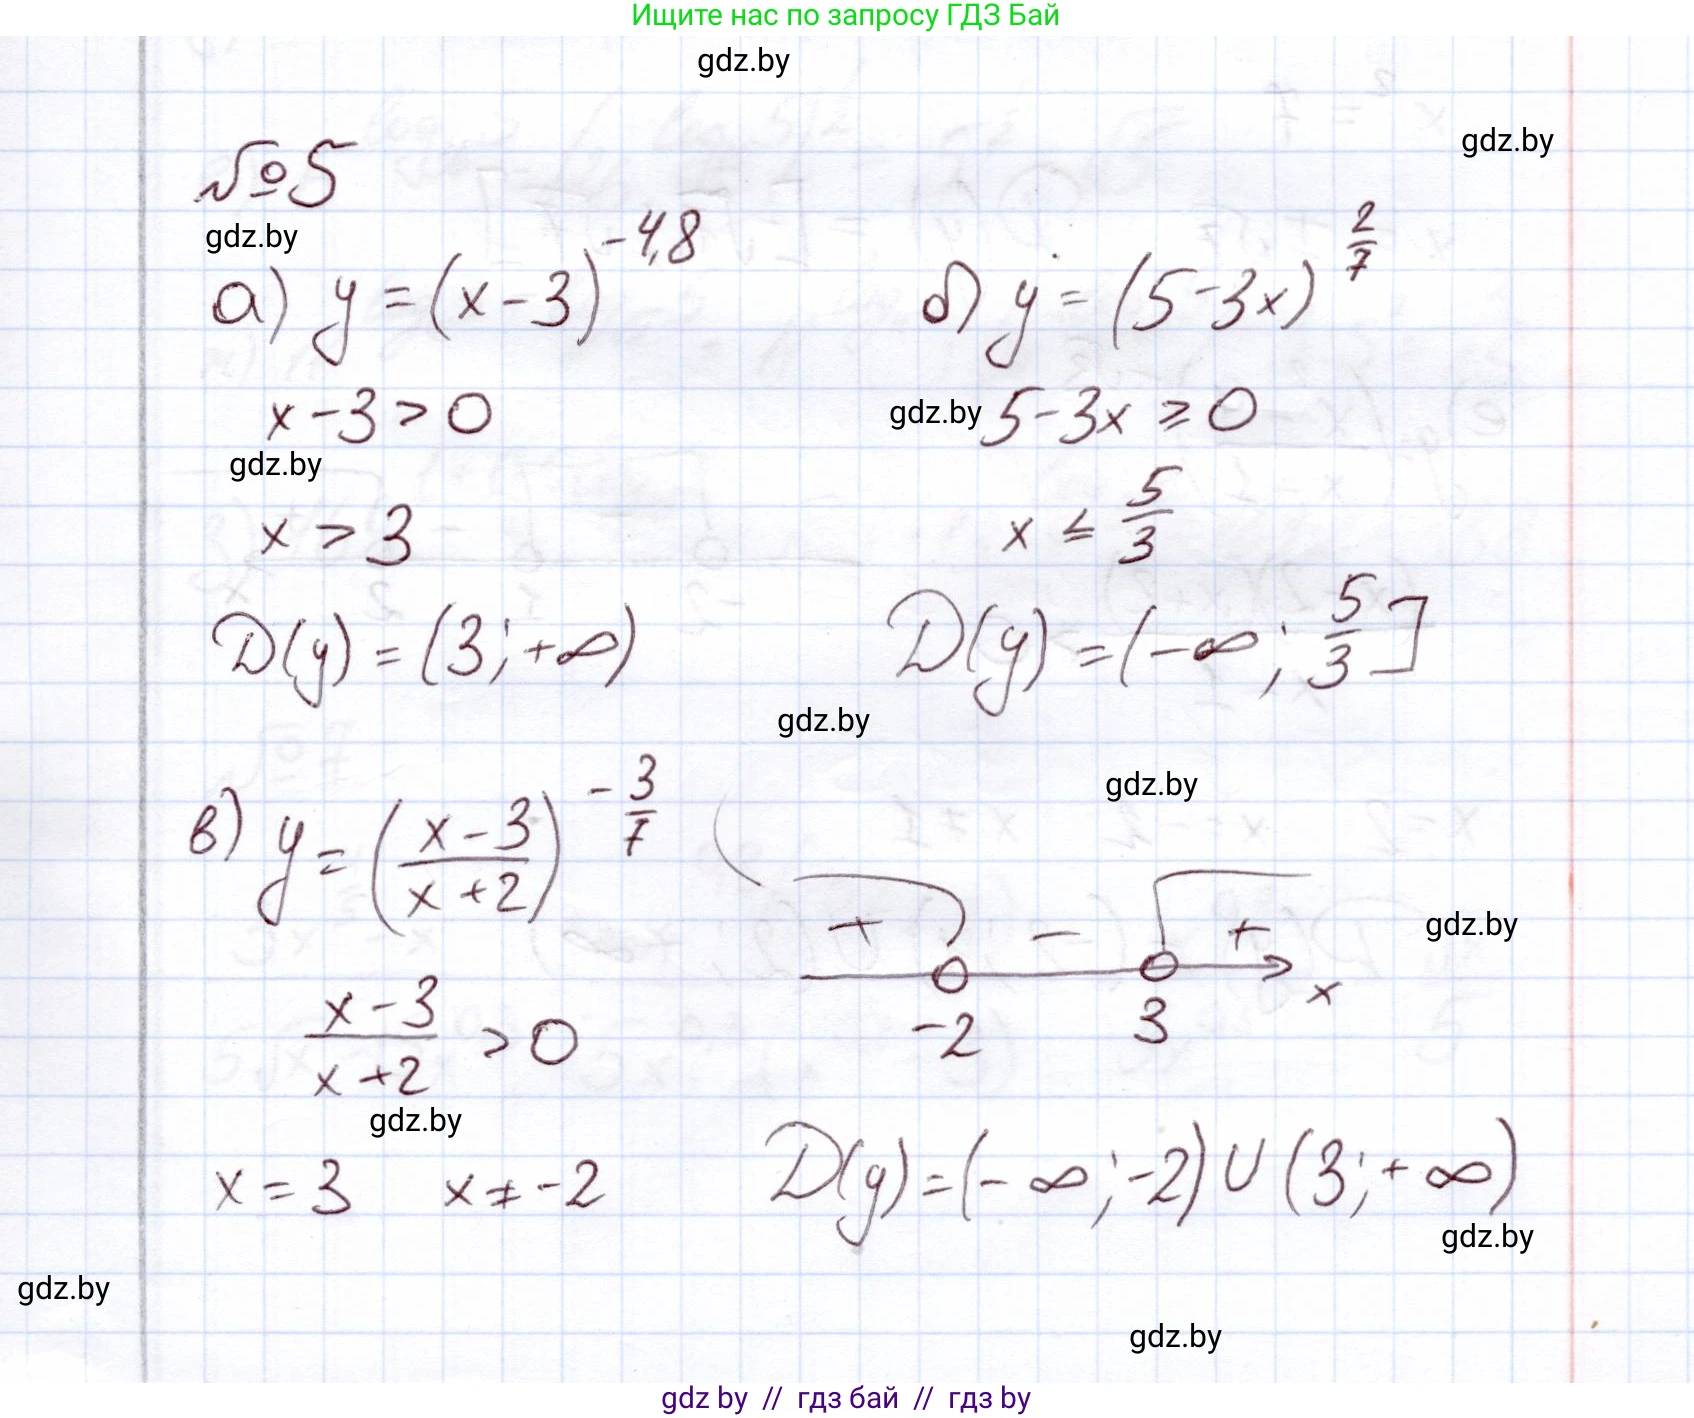 Ищите нас по запросу ГДЗ Бай
gdz.by
gdz.by
№5
gdz.by
а) y = (x-3)^{-4,8}
б) y = (5-3x)^{\frac{2}{7}}
x-3 > 0
gdz.by
5-3x ≥ 0
gdz.by
x > 3
x ≤ \frac{5}{3}
D(y) = (3; +∞)
D(y) = (-∞; \frac{5}{3}]
gdz.by
gdz.by
в) y = (\frac{x-3}{x+2})^{-\frac{3}{7}}
+ - +
gdz.by
-2 3 x
\frac{x-3}{x+2} > 0
gdz.by
x = 3 x ≠ -2
D(y) = (-∞; -2) ∪ (3; +∞)
gdz.by
gdz.by
gdz.by
gdz by // гдз бай // гдз by